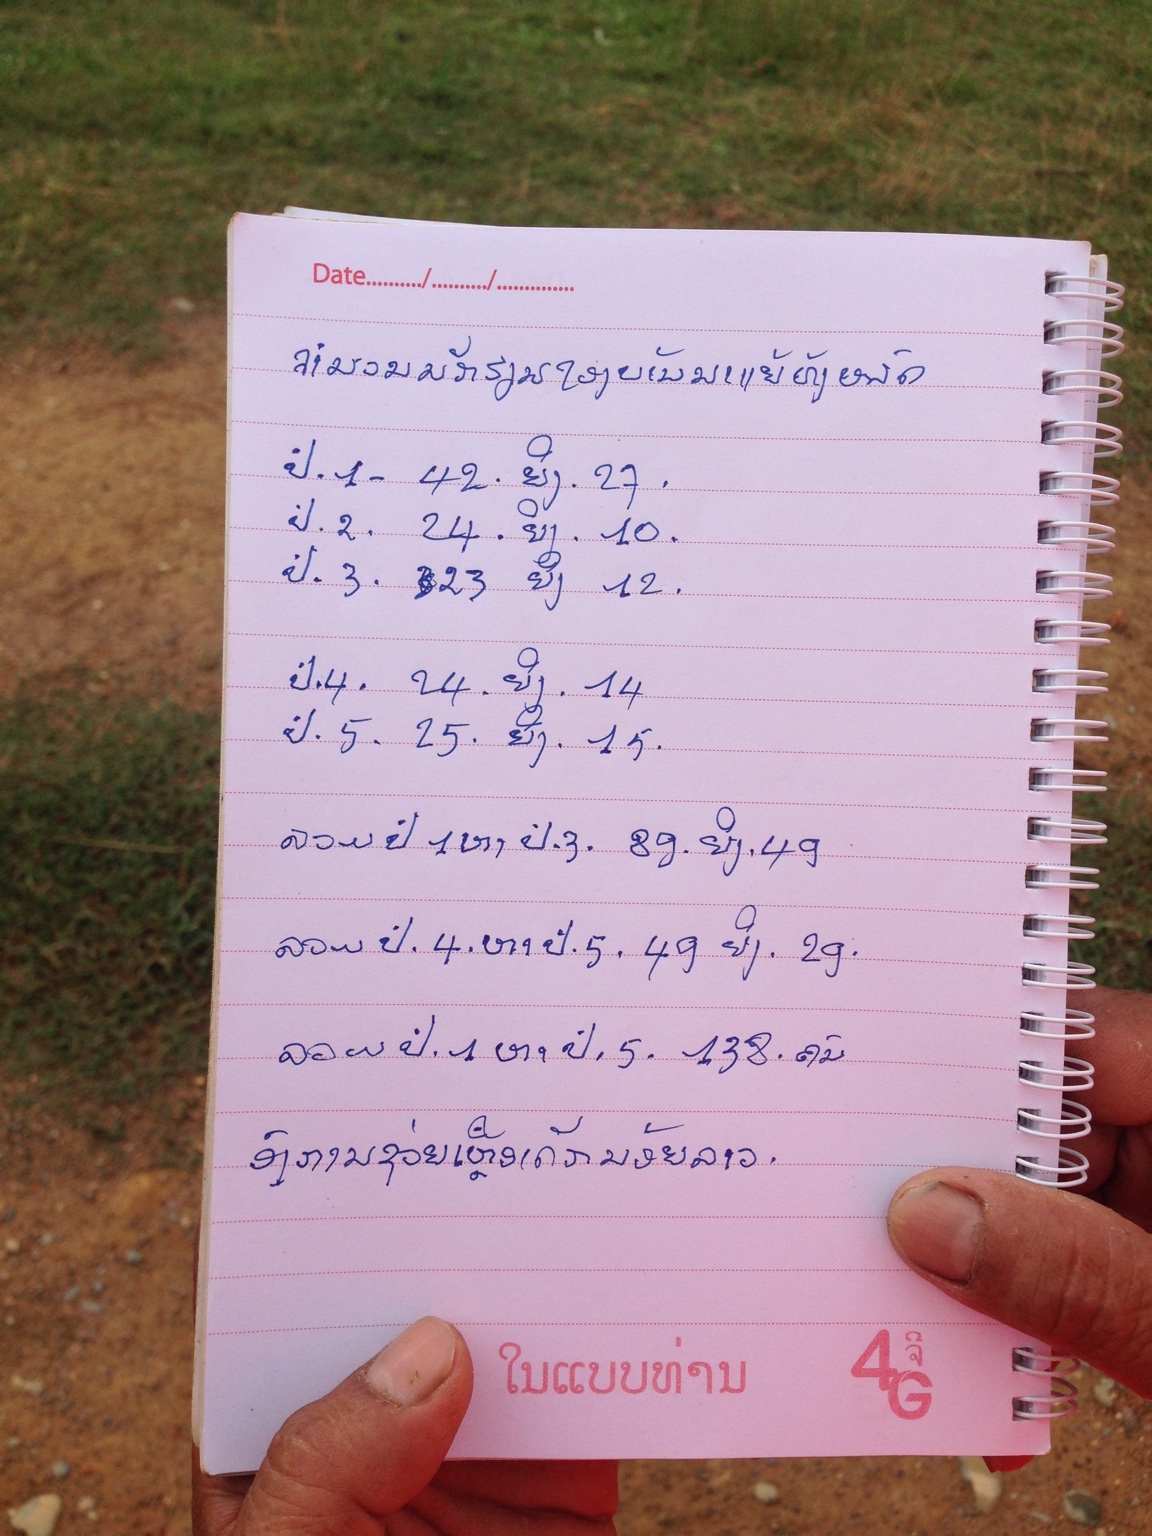 Date........../........../..............
ຈຳນວນນັກຮຽນໂຮງ
ປໍ.1- 42. ຍິງ. 27.
ປໍ.2. 24. ຍິງ. 10.
ປໍ.3. 23 ຍິງ 12.
ປໍ.4. 24. ຍິງ. 14
ປໍ.5. 25. ຍິງ. 15.
ລວມ ປໍ 1 ຫາ ປໍ.3. 89. ຍິງ. 49
ລວມ ປໍ. 4. ຫາ ປໍ. 5. 49 ຍິງ. 29.
ລວມ ປໍ. 1 ຫາ ປໍ. 5. 138. ຄົນ
ອົງການຊ່ວຍເຫຼືອເດັກນ້ອຍລາວ.
ໃນແບບທ່ານ
4G ຈີ